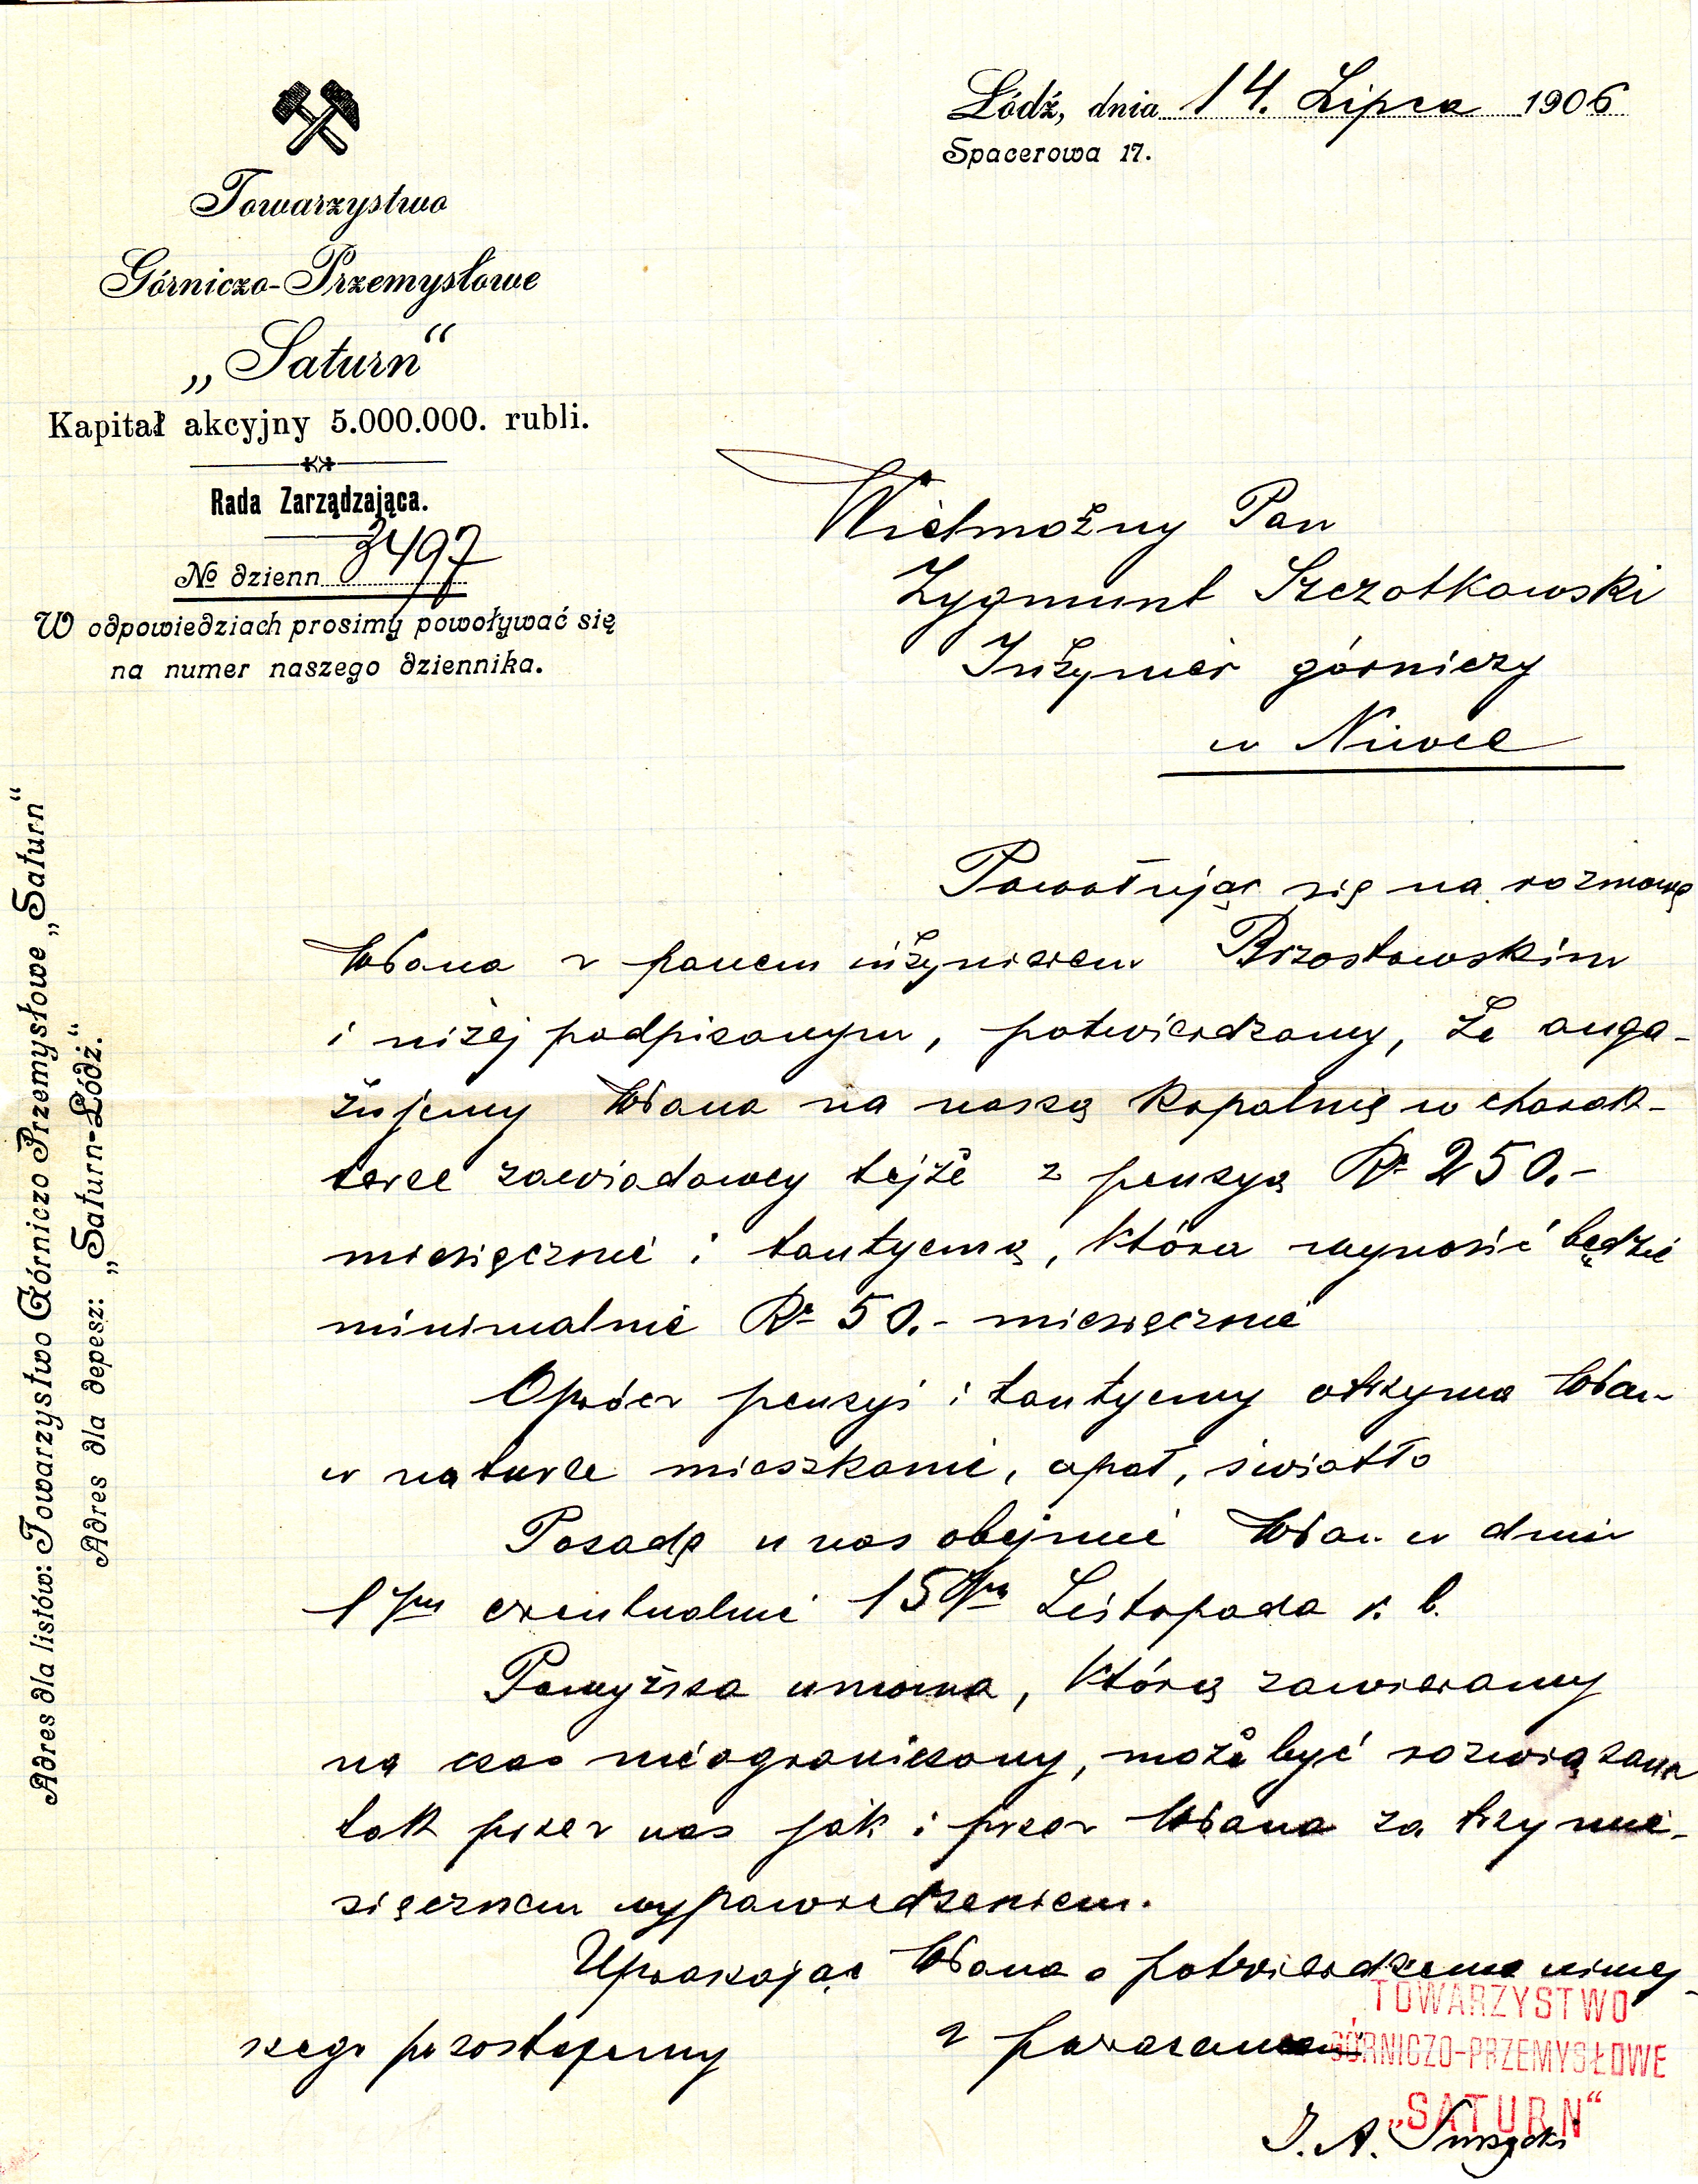 Łódź, dnia 14. Lipca 1906
Spacerowa 17.
Towarzystwo
Górniczo-Przemysłowe
„Saturn“
Kapitał akcyjny 5.000.000. rubli.
Rada Zarządzająca.
№ dzienn. 3497
W odpowiedziach prosimy powoływać się
na numer naszego dziennika.
Adres dla listów: Towarzystwo Górniczo Przemysłowe „Saturn“
Adres dla depesz: „Saturn-Łódź.“
Wielmożny Pan
Zygmunt Szczotkowski
Inżynier górniczy
w Niwce
Powołując się na rozmowę
WPana z panem inżynierem Brzostowskim
i niżej podpisanym, potwierdzamy, że anga-
żujemy WPana na naszą kopalnię w charak-
terze zawiadowcy tejże z pensyą Rs 250.-
miesięcznie i tantyemą, która wynosić będzie
minimalnie Rs 50.- miesięcznie
Oprócz pensyi i tantyemy otrzyma WPan
w naturze mieszkanie, opał, światło
Posadę u nas obejmie WPan w dniu
1ym ewentualnie 15ym Listopada r. b.
Powyższa umowa, którą zawieramy
na czas nieograniczony, może być rozwiązana
tak przez nas jak i przez WPana za trzymie-
sięcznem wypowiedzeniem.
Upraszając WPana o potwierdzenie niniej-
szego pozostajemy
z poważaniem
TOWARZYSTWO
GÓRNICZO-PRZEMYSŁOWE
„SATURN“
J. A.